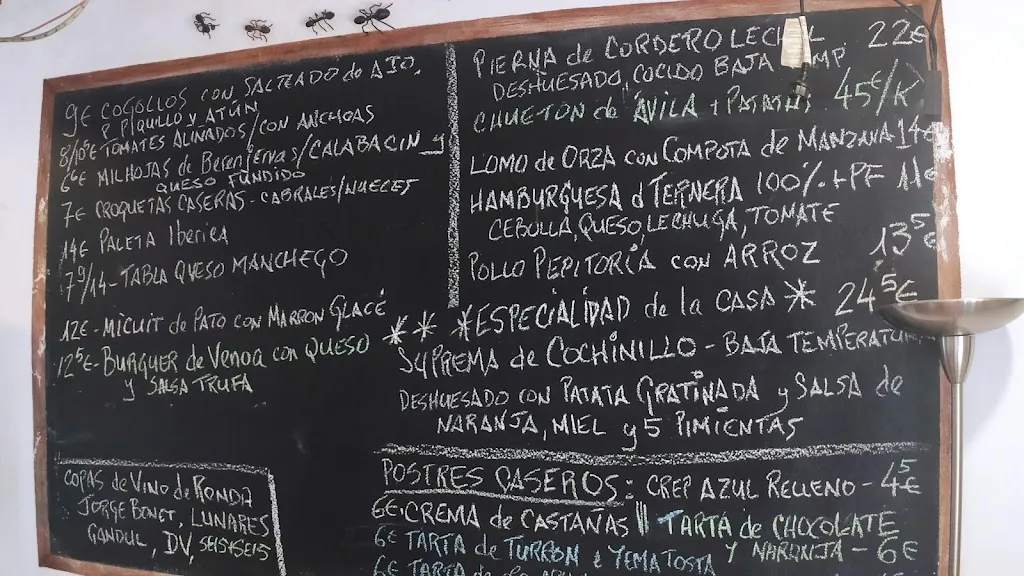 9€ COGOLLOS CON SALTEADO de AJO,
P. PIQUILLO Y ATÚN
8/10€ TOMATES ALINADOS/CON ANCHOAS
6€ MILHOJAS de Berenjenas/CALABACIN y
QUESO FUNDIDO
7€ CROQUETAS CASERAS - CABRALES/NUECES
14€ PALETA IbERICA
7⁹/14 - TABLA QUESO MANCHEGO
12€ - MICUIT de PATO CON MARRON GLACÉ
12⁵€ - BURGUER de VENAO CON QUESO
y SALSA TRUFA
COPAS de VINO de RONDA
JORGE BONET, LUNARES
GANDUL, DV,
PIERNA de CORDERO LECHAL 22€
DESHUESADO, COCIDO BAJA
CHULETON de ÁVILA + PATATAS 45€/K
LOMO de ORZA CON COMPOTA de MANZANA 14€
HAMBURGUESA d TERNERA 100% + PF 11€
CEBOLLA, QUESO, LECHUGA, TOMATE
POLLO PEPITORIA CON ARROZ 13⁵€
*** ESPECIALIDAD de la CASA * 24⁵€
SUPREMA de COCHINILLO - BAJA TEMPERATURA
DESHUESADO CON PATATA GRATINADA y SALSA de
NARANJA, MIEL y 5 PIMIENTAS
POSTRES CASEROS: CREP AZUL RELLENO - 4⁵€
6€ CREMA de CASTAÑAS || TARTA de CHOCOLATE
Y NARANJA - 6€
6€ TARTA de TURRON e YEMA TOSTA
6€ TARTA de